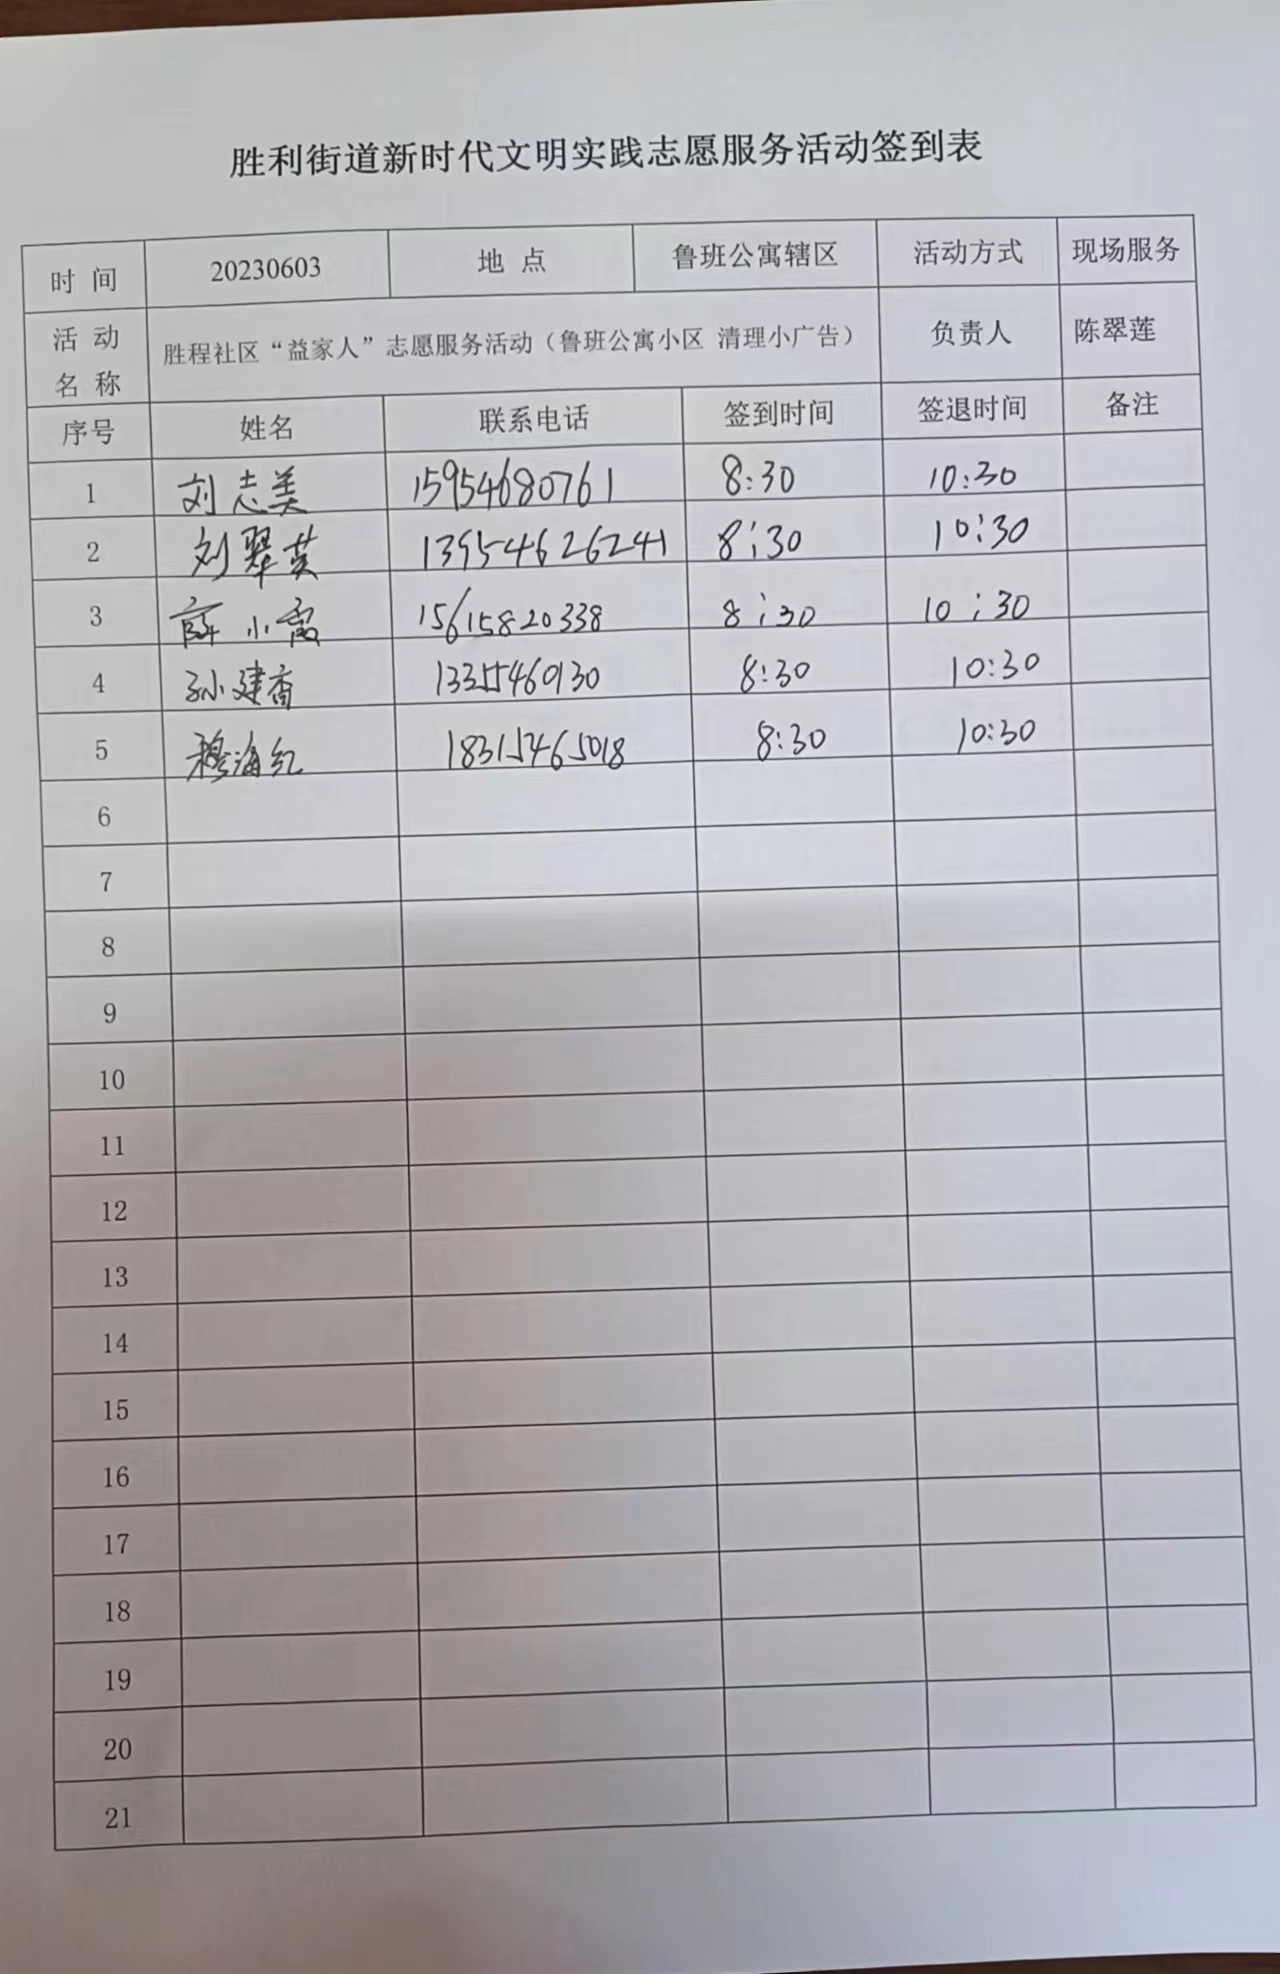 胜利街道新时代文明实践志愿服务活动签到表
时 间 20230603 地 点 鲁班公寓辖区 活动方式 现场服务
活 动 名 称 胜程社区“益家人”志愿服务活动（鲁班公寓小区 清理小广告） 负责人 陈翠莲
序号 姓名 联系电话 签到时间 签退时间 备注
1 刘志美 15954680761 8:30 10:30
2 刘翠英 13954626241 8:30 10:30
3 薛小霞 15615820338 8:30 10:30
4 孙建香 13355460130 8:30 10:30
5 穆海红 18315465018 8:30 10:30
6
7
8
9
10
11
12
13
14
15
16
17
18
19
20
21